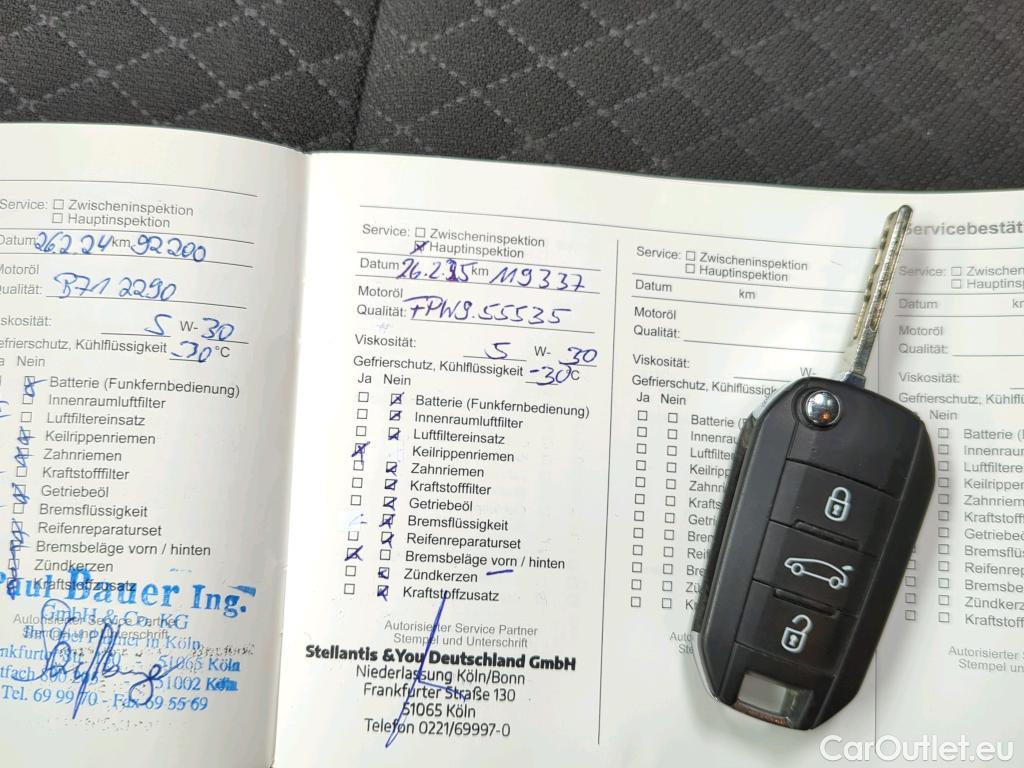 Service: ☐ Zwischeninspektion
☐ Hauptinspektion
Datum 26.2.24 km 92200
Motoröl
Qualität: B71 2290
Viskosität: 5 W- 30
Gefrierschutz, Kühlflüssigkeit -30 °C
Ja Nein
Batterie (Funkfernbedienung)
Innenraumluftfilter
Luftfiltereinsatz
Keilrippenriemen
Zahnriemen
Kraftstofffilter
Getriebeöl
Bremsflüssigkeit
Reifenreparaturset
Bremsbeläge vorn / hinten
Zündkerzen
Kraftstoffzusatz
Paul Bauer Ing.
GmbH & Co. KG
Autorisierter Service Partner
51065 Köln
51002 Köln
Tel. 69 99 70 - Fax 69 55 69
Service: ☐ Zwischeninspektion
☒ Hauptinspektion
Datum 26.2.25 km 119337
Motoröl
Qualität: FPW9.55535
Viskosität: 5 W- 30
Gefrierschutz, Kühlflüssigkeit -30°C
Ja Nein
☐ ☒ Batterie (Funkfernbedienung)
☐ ☒ Innenraumluftfilter
☐ ☒ Luftfiltereinsatz
☒ ☐ Keilrippenriemen
☐ ☒ Zahnriemen
☐ ☒ Kraftstofffilter
☐ ☒ Getriebeöl
☒ Bremsflüssigkeit
☐ ☒ Reifenreparaturset
☒ ☐ Bremsbeläge vorn / hinten
☐ ☒ Zündkerzen
☐ ☒ Kraftstoffzusatz
Autorisierter Service Partner
Stempel und Unterschrift
Stellantis &You Deutschland GmbH
Niederlassung Köln/Bonn
Frankfurter Straße 130
51065 Köln
Telefon 0221/69997-0
Service: ☐ Zwischeninspektion
☐ Hauptinspektion
Datum km
Motoröl
Qualität:
Viskosität: W-
Gefrierschutz, Kühlflüssig
Ja Nein
☐ ☐ Batterie (F
☐ ☐ Innenrau
☐ ☐ Luftfilte
☐ ☐ Keilripp
☐ ☐ Zahnri
☐ ☐ Krafts
☐ ☐ Getri
☐ ☐ Bren
☐ ☐ Reif
☐ ☐ Bre
☐ ☐ Zü
☐ ☐ K
Autoris
Ste
Servicebestät
Service: ☐ Zwischen
☐ Hauptins
Datum km
Motoröl
Qualität:
Viskosität:
Gefrierschutz, Kühlf
Nein
☐ Batterie (
☐ Innenrau
☐ Luftfilte
☐ Keilripp
☐ Zahnrie
☐ Kraftsto
☐ Getriebe
☐ Bremsflü
☐ Reifenre
☐ Bremsbe
☐ Zündkerz
☐ Kraftstoff
Autorisierter S
Stempel un
CarOutlet.eu